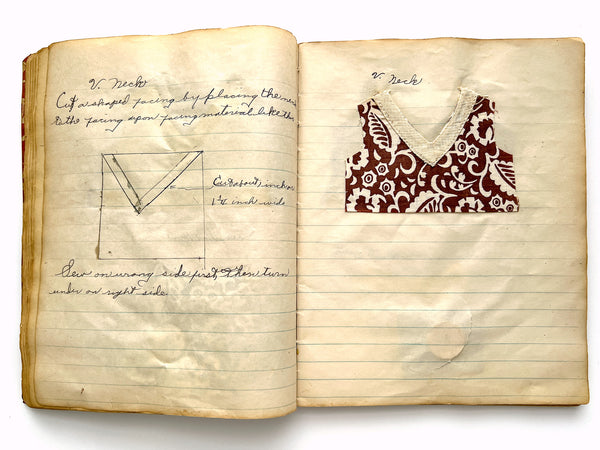 V. Neck
Cut a shaped facing by placing the neck
& the facing upon facing material like this
Cut about, inch or
1¼ inch wide
Sew on wrong side first, then turn
under on right side.
V. Neck